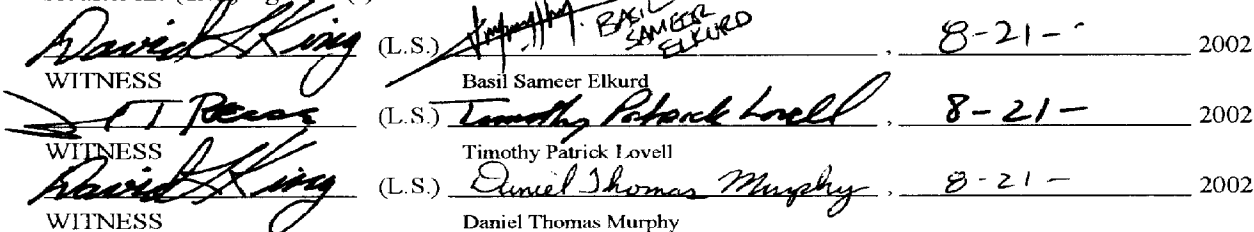 David L King (L.S.) BASIL SAMEER ELKURD , 8-21- 2002
WITNESS Basil Sameer Elkurd
(L.S.) Timothy Patrick Lovell , 8-21- 2002
WITNESS Timothy Patrick Lovell
David L King (L.S.) Daniel Thomas Murphy , 8-21- 2002
WITNESS Daniel Thomas Murphy